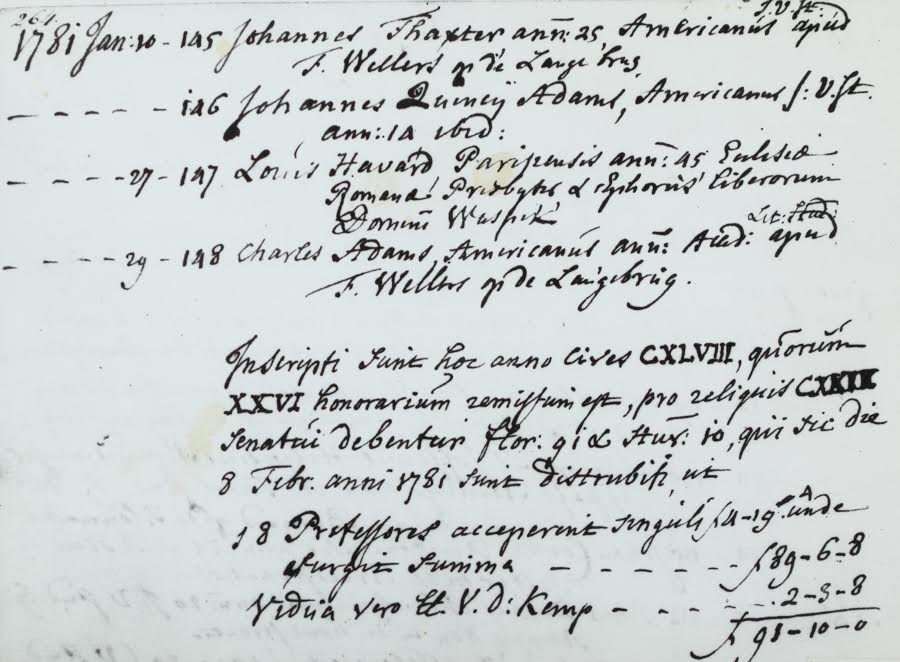 264.
J. U. St.
1781 Jan: 10 - 145 Johannes Thaxter ann: 25, Americanus apud
F. Wellers op de Langebrug
- - - - - - 146 Johannes Quincÿ Adams, Americanus J: U. St.
ann: 14 ibid:
- - - - - 27 - 147 Louis Havard Parisiensis ann: 45 Eclisiæ
Romanæ Presbyter & Ephorus liberorum
Domini Waspik
Lit: Stud:
- - - - - 29 - 148 Charles Adams, Americanus ann: apud
F. Wellers op de Langebrug.
Inscripti sunt hoc anno Cives CXLVIII, quorum
XXVI honorarium remissum est, pro reliquis
Senatui debentur flor: 91 & Stuv: 10, qui sic die
8 Febr. anni 1781 sunt distrubiti, ut
18 Professores acceperint singuli f 4-19 unde
surgit summa - - - - - - - f 89-6-8
Vidua vero V. d: Kemp - - - - . . 2-3-8
f 91-10-0